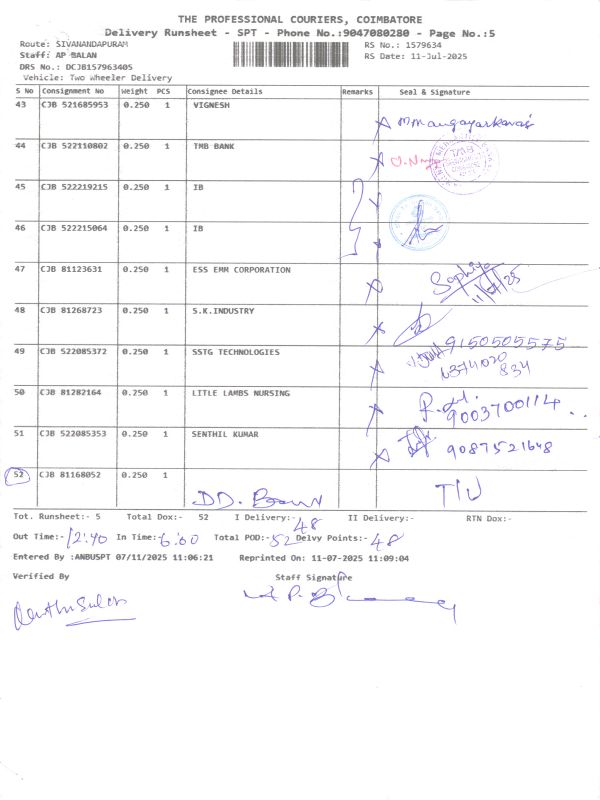 THE PROFESSIONAL COURIERS, COIMBATORE
Delivery Runsheet - SPT - Phone No.:9047080280 - Page No.:5
Route: SIVANANDAPURAM
RS No.: 1579634
Staff: AP BALAN
RS Date: 11-Jul-2025
DRS No.: DCJB157963405
Vehicle: Two Wheeler Delivery
S No Consignment No Weight PCS Consignee Details Remarks Seal & Signature
43 CJB 521685953 0.250 1 VIGNESH
44 CJB 522110802 0.250 1 TMB BANK
TMB
45 CJB 522219215 0.250 1 IB
46 CJB 522215064 0.250 1 IB
47 CJB 81123631 0.250 1 ESS EMM CORPORATION
48 CJB 81268723 0.250 1 S.K.INDUSTRY
9150505575
49 CJB 522085372 0.250 1 SSTG TECHNOLOGIES
6374020
834
50 CJB 81282164 0.250 1 LITLE LAMBS NURSING
9003700114
51 CJB 522085353 0.250 1 SENTHIL KUMAR
9087521648
52 CJB 81168052 0.250 1
Tot. Runsheet:- 5 Total Dox:- 52 I Delivery:- 48 II Delivery:- RTN Dox:-
Out Time:- 12:40 In Time:- 6:00 Total POD:- 52 Delvy Points:- 48
Entered By :ANBUSPT 07/11/2025 11:06:21 Reprinted On: 11-07-2025 11:09:04
Verified By Staff Signature